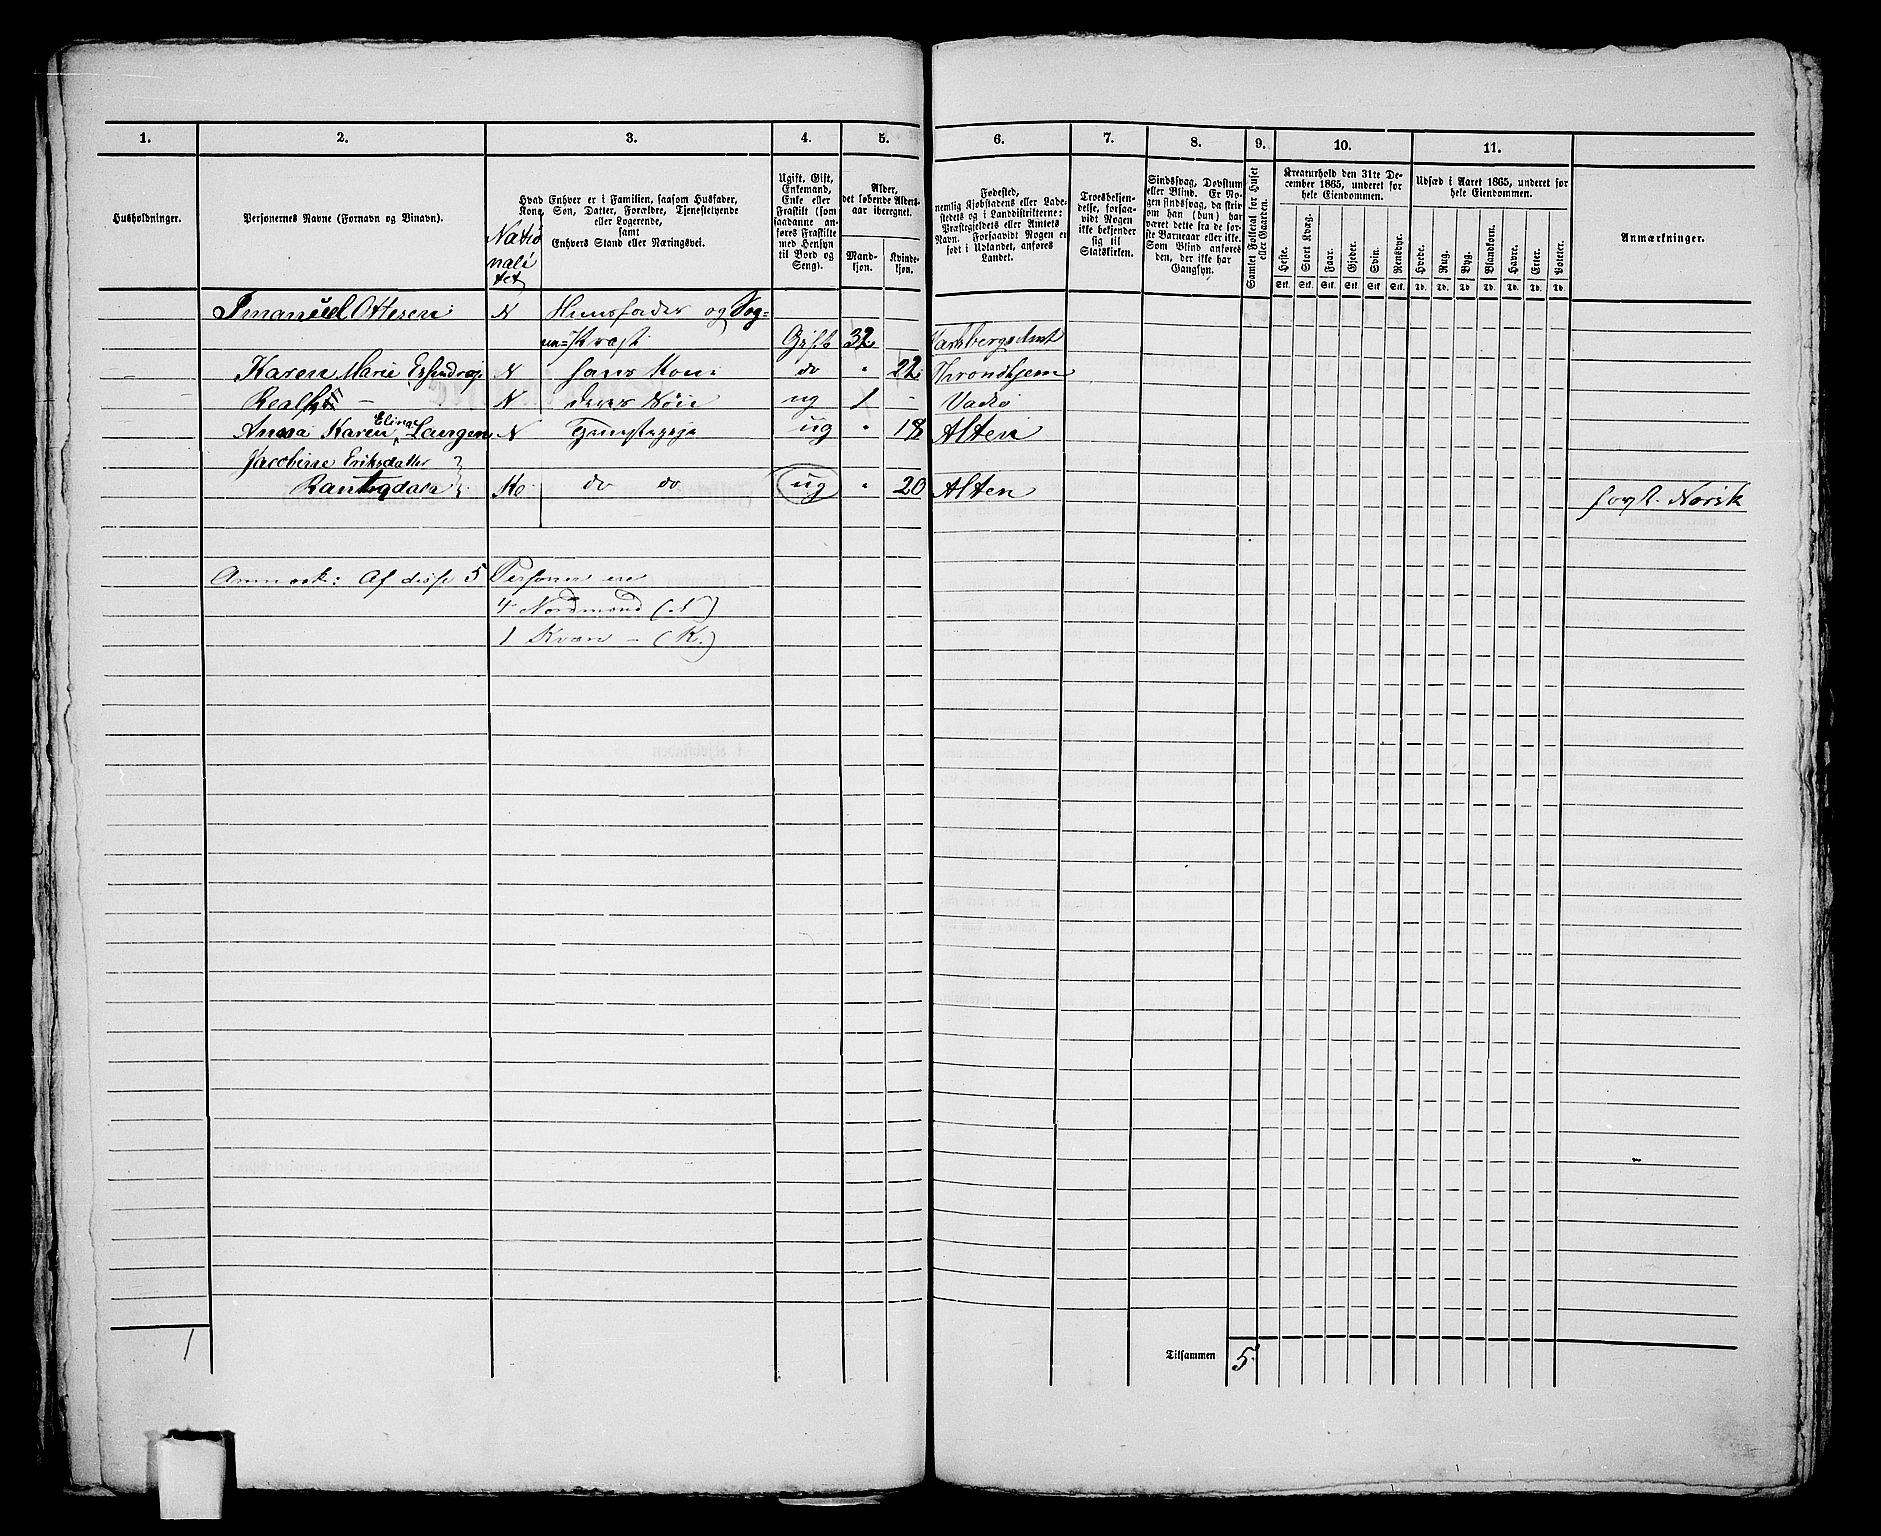 1.
2.
3.
4.
5.
6.
7.
8.
9.
10.
11.
Husholdninger.
Personernes Navne (Fornavn og Binavn).
Hvad Enhver er i Familien, saasom Husfader,
Kone, Søn, Datter, Forældre, Tjenestetyende
eller Logerende,
samt
Enhvers Stand eller Næringsvei.
Natio
nali
tet
Ugift, Gift,
Enkemand,
Enke eller
Fraskilt (som
saadanne an-
føres Fraskilte
med Hensyn
til Bord og
Seng).
Alder,
det løbende Alders-
aar iberegnet.
Mand-
kjøn.
Kvinde-
kjøn.
Fødested,
nemlig Kjøbstadens eller Lade-
stedets og i Landdistrikterne:
Præstegjeldets eller Amtets
Navn. Forsaavidt Nogen er
født i Udlandet, anføres
Landet.
Troesbekjen-
delse, forsaa-
vidt Nogen
ikke bekjender
sig til
Statskirken.
Sindssvag, Døvstum
eller Blind. Er No-
gen sindssvag, da skriv
om han (hun) har
været dette fra de før-
ste Barneaar eller ikke.
Som Blind anføres
den, der ikke har
Gangsyn.
Samlet Folketal for Huset
eller Gaarden.
Kreaturhold den 31te De-
cember 1865, underet for
hele Eiendommen.
Heste.
Stort Kvæg.
Faar.
Gjeder.
Svin.
Rensdyr.
Stk. Stk. Stk. Stk. Stk. Stk.
Udsæd i Aaret 1865, underet for
hele Eiendommen.
Hvede.
Rug.
Byg.
Blandkorn.
Havre.
Erter.
Poteter.
Td. Td. Td. Td. Td. Td. Td.
Anmærkninger.
Imanuel Ottesen N Huusfader og Sog=
ne=Præst Gift 32 Amt
Karen Marie N hans Kone do " 22 Throndhjem
N deres Søn ug 1 - Vadsø
Anna Karen Elina Langen N Tjenstepige ug " 18 Alten
Jacobine Eriksdatter
do do ug " 20 Alten Norsk
Anmærk: Af disse 5 Personer ere
4 Nordmænd (N)
1 Kvæn - (K.)
1
Tilsammen 5.